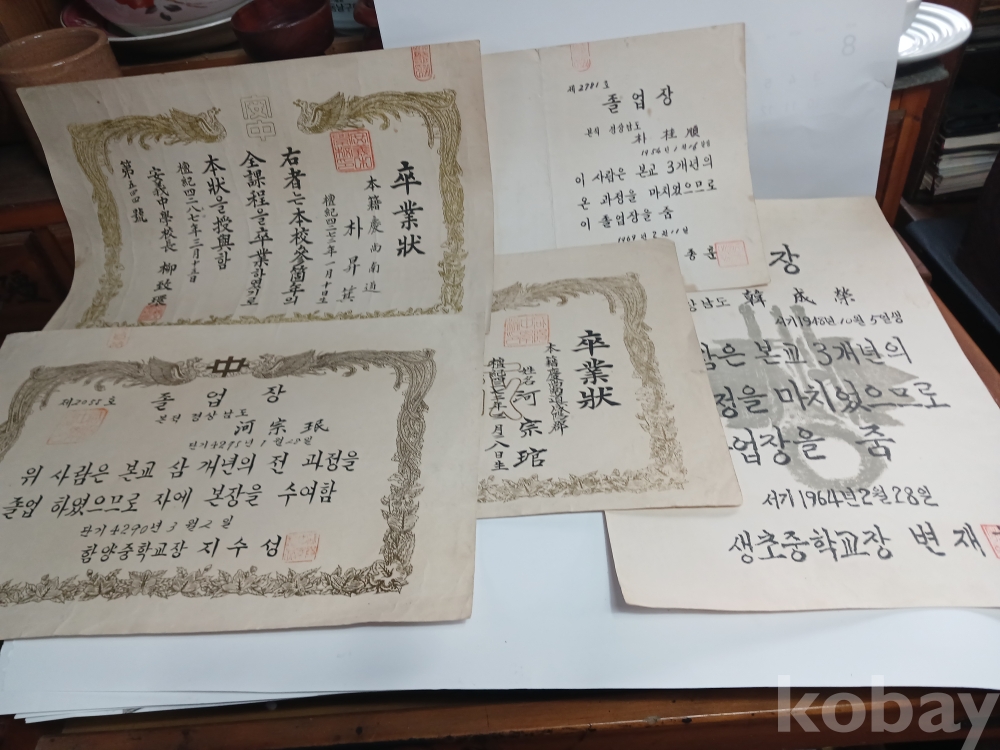 卒業狀
本籍慶尚南道
朴昇箕
檀紀四二七二年一月十日生
右者는本校參箇年의
全課程을卒業하였기로
本狀을授與함
檀紀四二八七年三月
安義中學校長 柳致環
第五四四號
安中
제2981호
졸업장
본적 경상남도
朴桂順
이 사람은 본교 3개년의
온 과정을 마치었으므로
이 졸업장을 줌
1969년 2월 11일
장
남도 韓成榮
서기1948년10월5일생
은 본교 3개년의
정을 마치었으므로
업장을 줌
서기1964년2월28일
생초중학교장 변재
卒業狀
姓名 河宗琯
月八日生
中
제2055호
졸업장
본적 경상남도
河宗珉
위 사람은 본교 삼 개년의 전 과정을
졸업 하였으므로 자에 본장을 수여함
단기4290년 3월 2일
함양중학교장 지수성
kobay